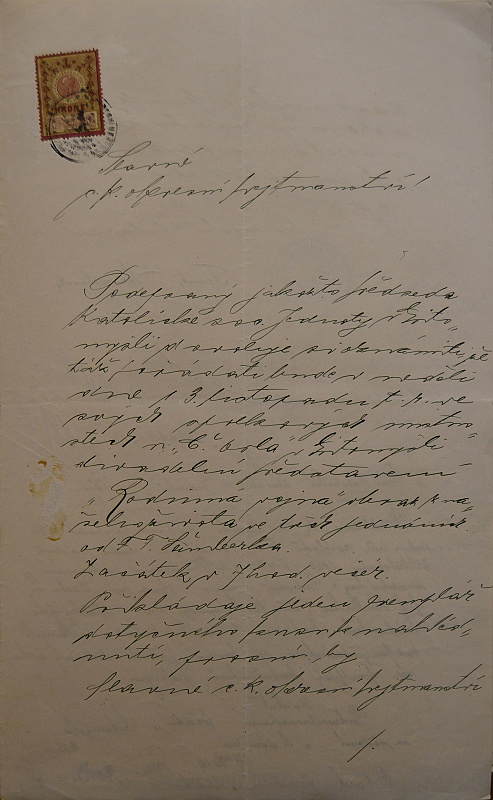 1
KRONE
Slavné
c. k. okresní hejtmanství!
Podepsaný jakožto předseda
Katolické soc. Jednoty v Lito-
myšli dovoluje si oznámiti, že
táž pořádati bude v neděli
dne 13. listopadu t. r. ve
svých spolkových místno-
stech u „Č. orla" v Litomyšli
divadelní představení
„Rodinná vojna" obraz ze na-
šeho života ve třech jednáních
od F. F. Šamberka.
Začátek v 7 hod. večer.
Přikládaje jeden exemplář
dotyčného kusu k nahléd-
nutí, prosím, by
slavné c. k. okresní hejtmanství
/.